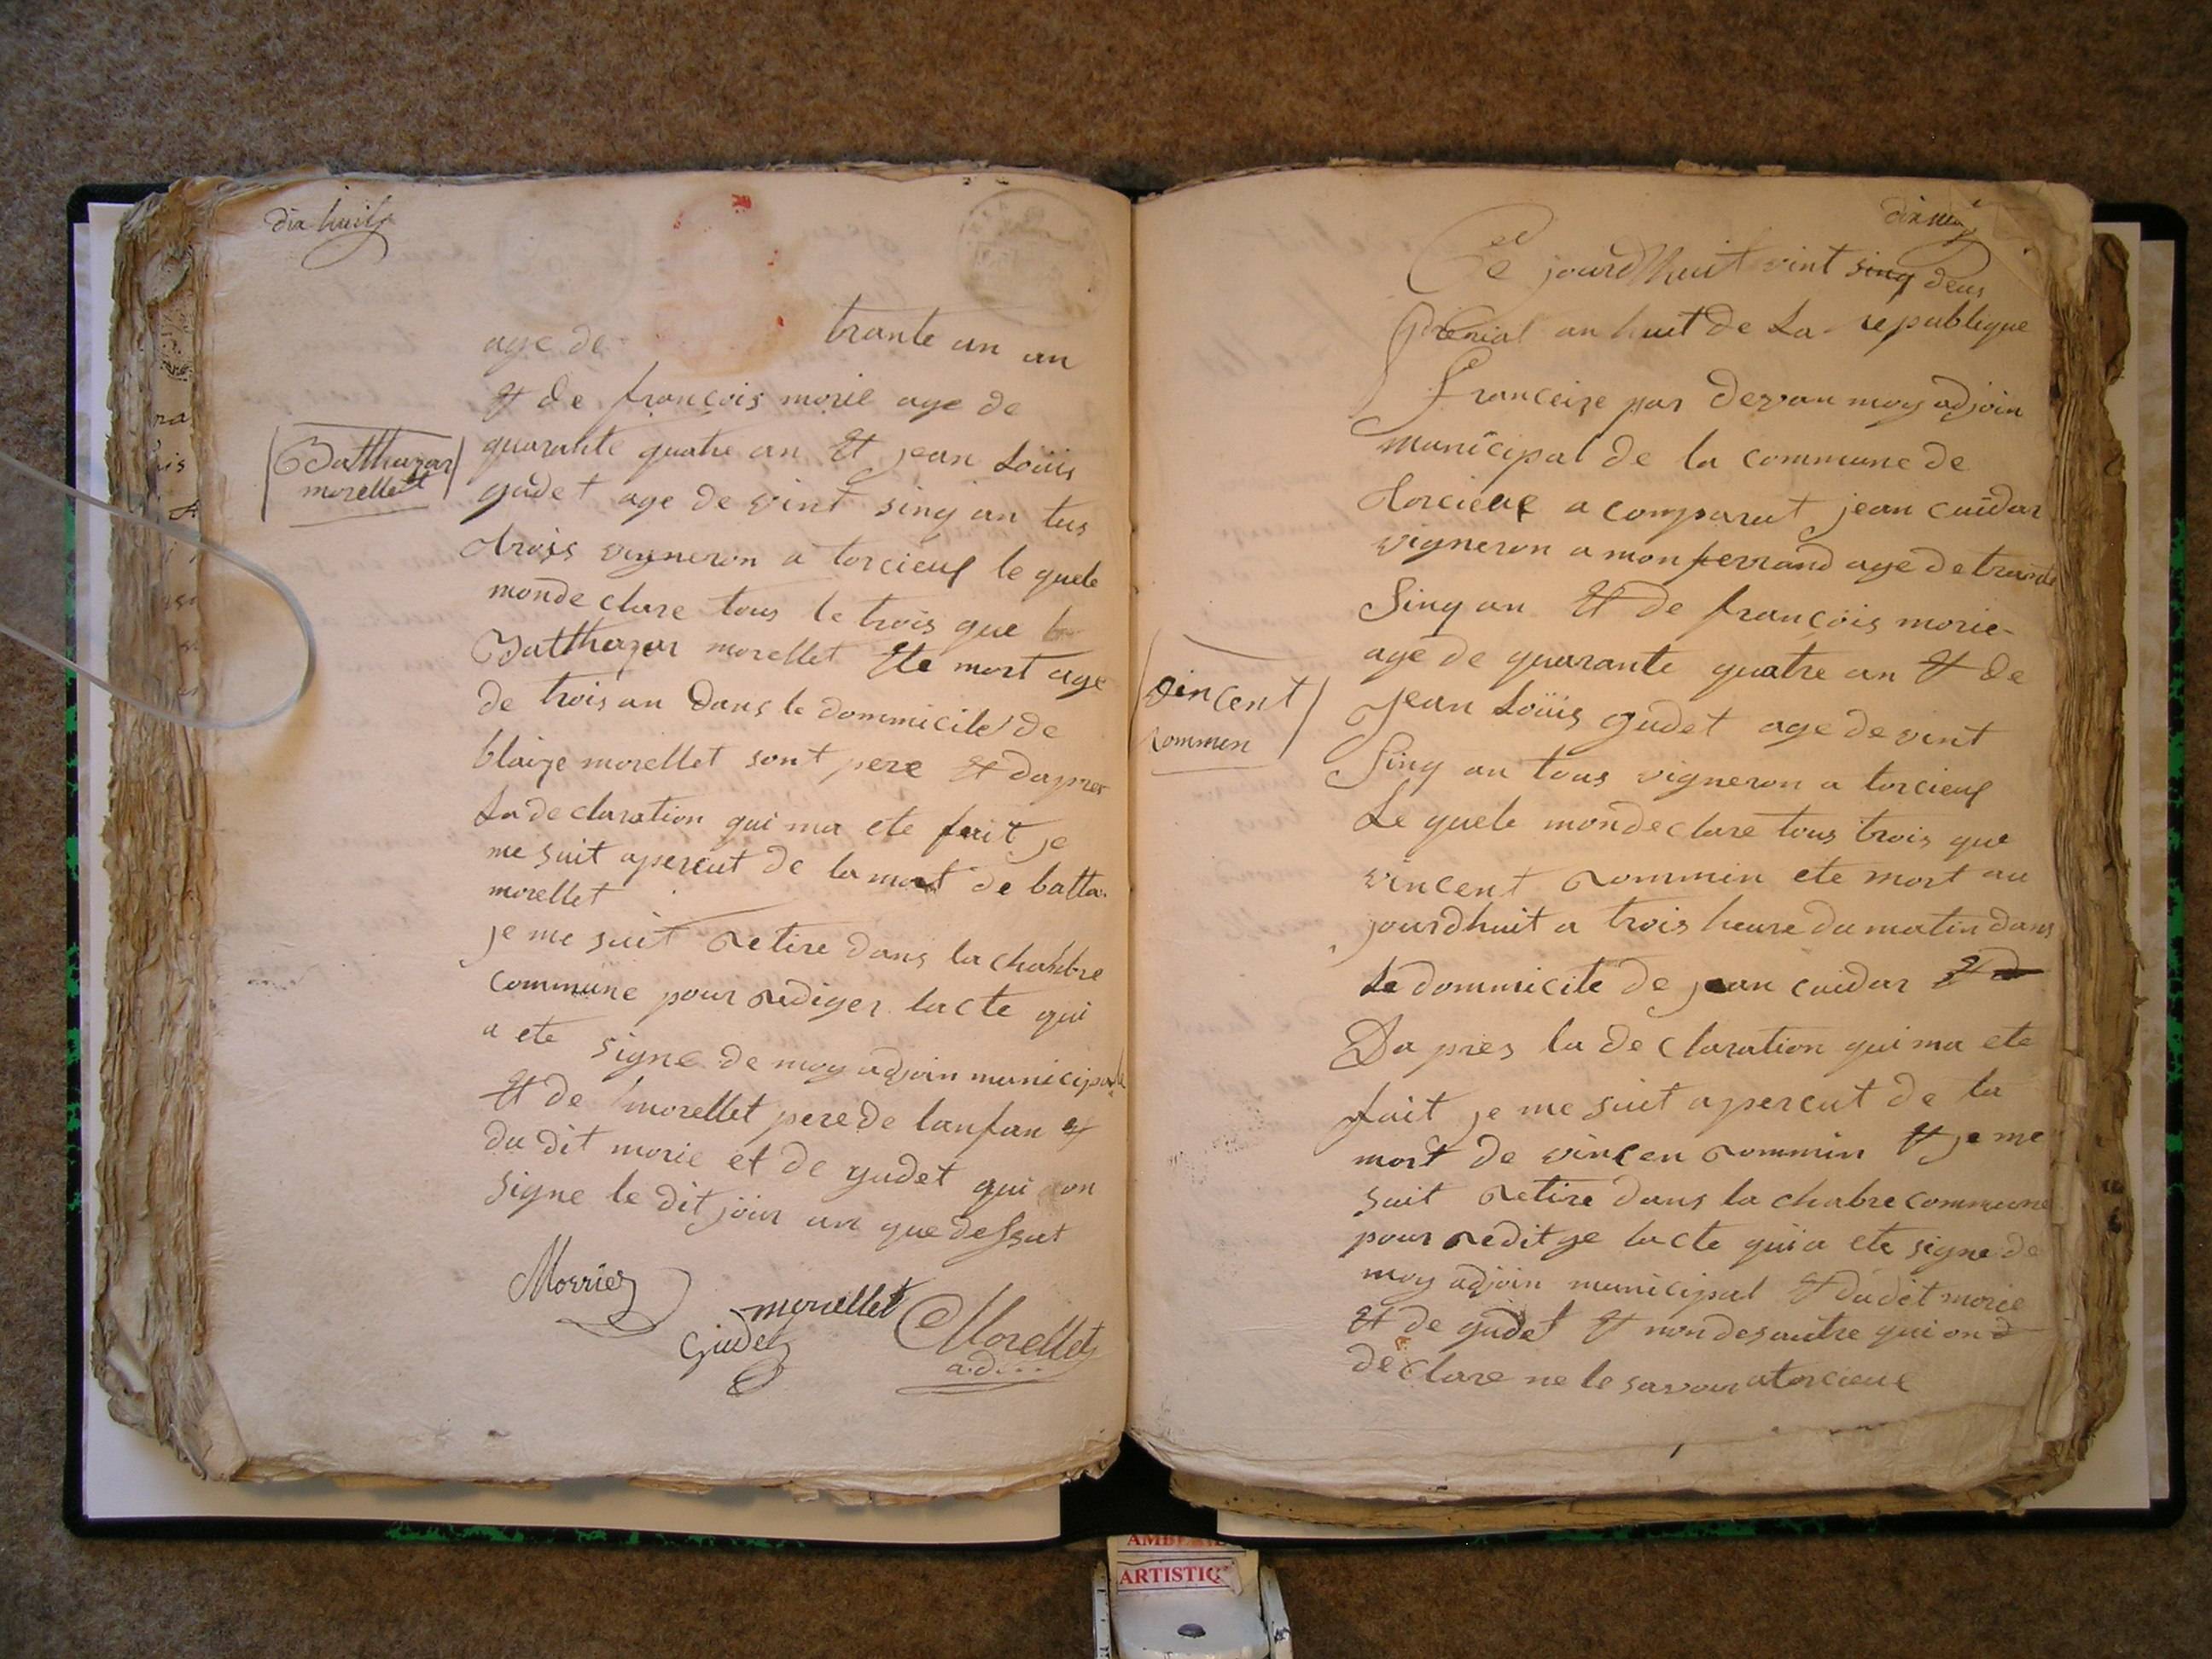 dix huit
age de trante un an
Et de françois morié age de
Batthazar
morellet
quarante quatre an Et jean Loüis
gudet age de vint sinq an tus
trois vigneron a torcieuf le quele
monde clare tous le trois que
Batthazar morellet Ete mort age
de trois an dans le dommicile de
blaize morellet sont pere Et daprer
La declaration qui ma ete fait je
me suit apercut de la mort de batta.
morellet
je me suit retire dans la chambre
commune pour rediger lacte qui
a ete signe de moy adjoin municipal
Et de morellet pere de lanfan et
du dit morié et de gudet qui on
signe le dit join an que dessut
Morriez
morellet
Gudet
Morellet
ad...
dix neuf
Ce jourdhuit vint sinq deus
prerial an huit de La republique
franceize par devan moy adjoin
municipal de la commune de
torcieuf a comparut jean cuidar
vigneron a monferrand age de trante
sinq an Et de françois morié
age de quarante quatre an Et de
jean Loüis gudet age de vint
sinq an tous vigneron a torcieuf
vincent
rommen
Le quele mondeclare tous trois que
vincent rommin ete mort au
jourdhuit a trois heure du matin dans
Le dommicile de jean cuidar Et d
Da pres la declaration qui ma ete
fait je me suit apercut de la
mort de vincen rommin Et je me
suit retire dans la chabre commune
pour reditge lacte qui a ete signe de
moy adjoin municipal Et dudit morié
Et de gudet Et non des autre qui on d
declare ne le savoir a torcieuf
AMBERIE
ARTISTIQ